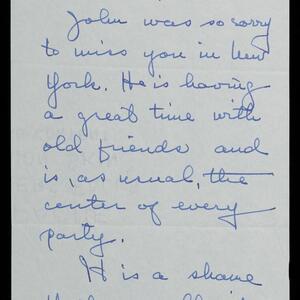 John was so sorry
to miss you in New
York. He is having
a great time with
old friends and
is, as usual, the
center of every
party.
It is a shame